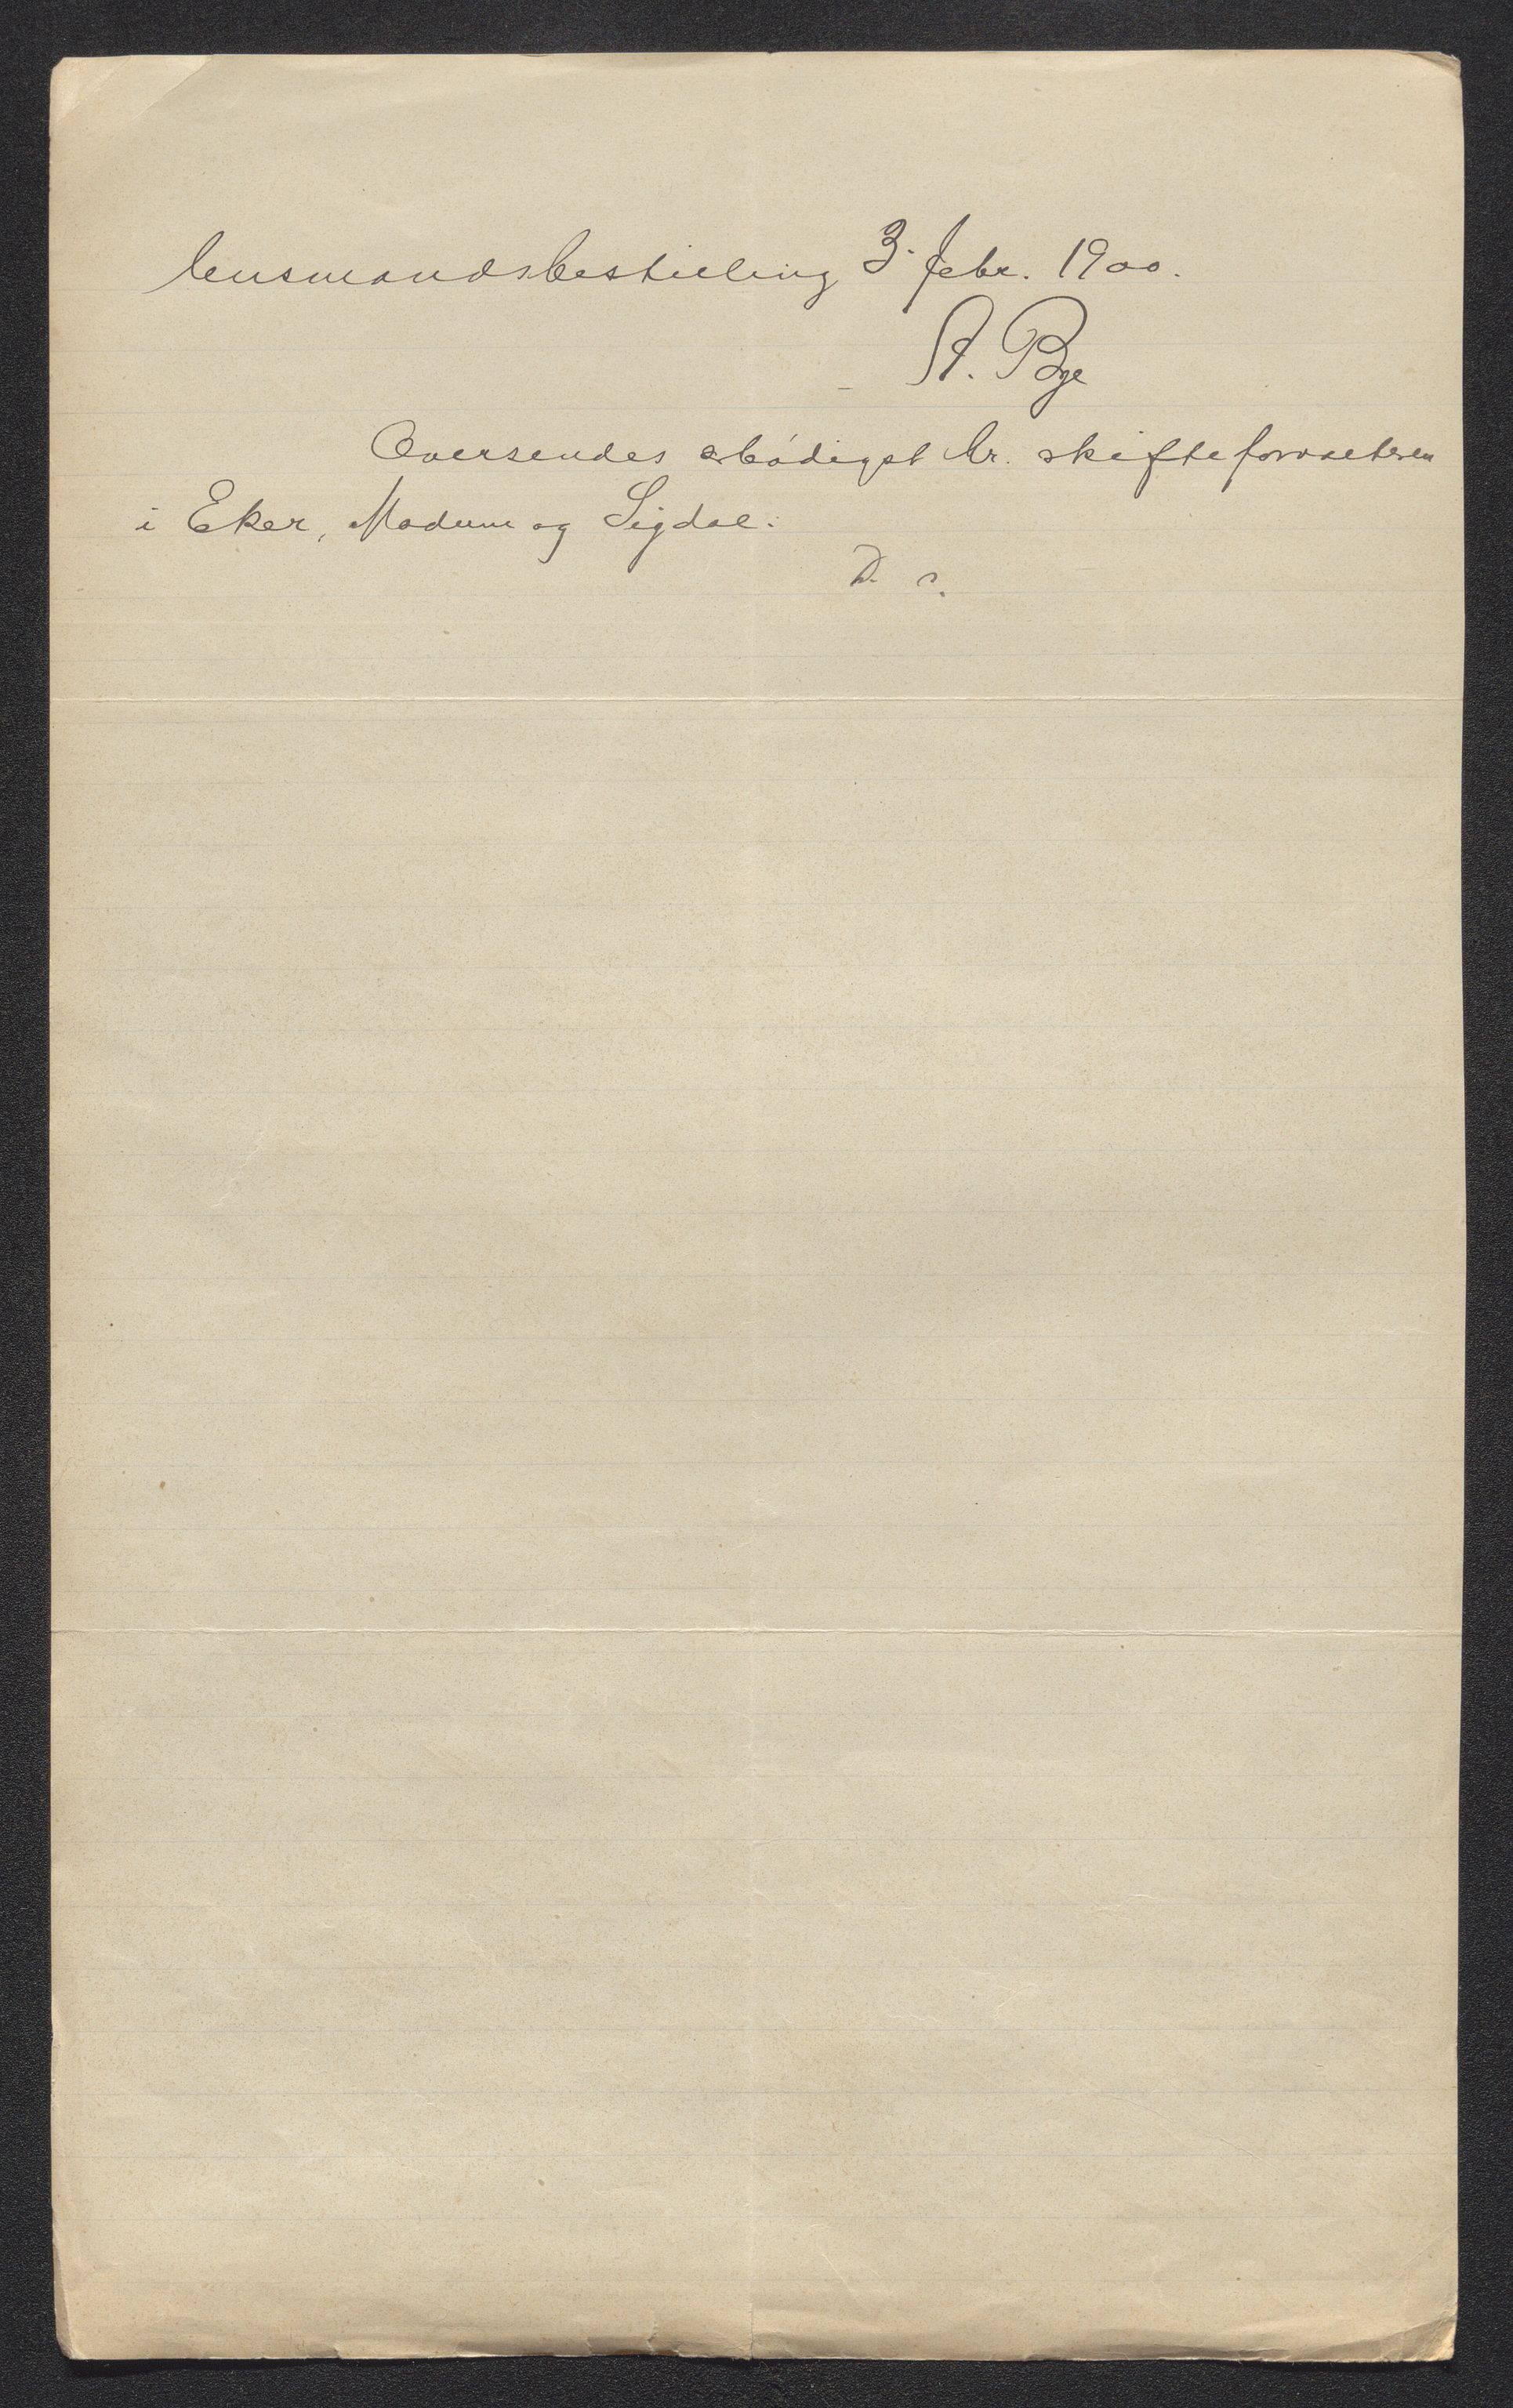 lensmandsbestilling 3. febr. 1900.
A. Bye
Oversendes ærbödigst hr. skifteforvalteren
i Eker, Modum og Sigdal.
D. s.